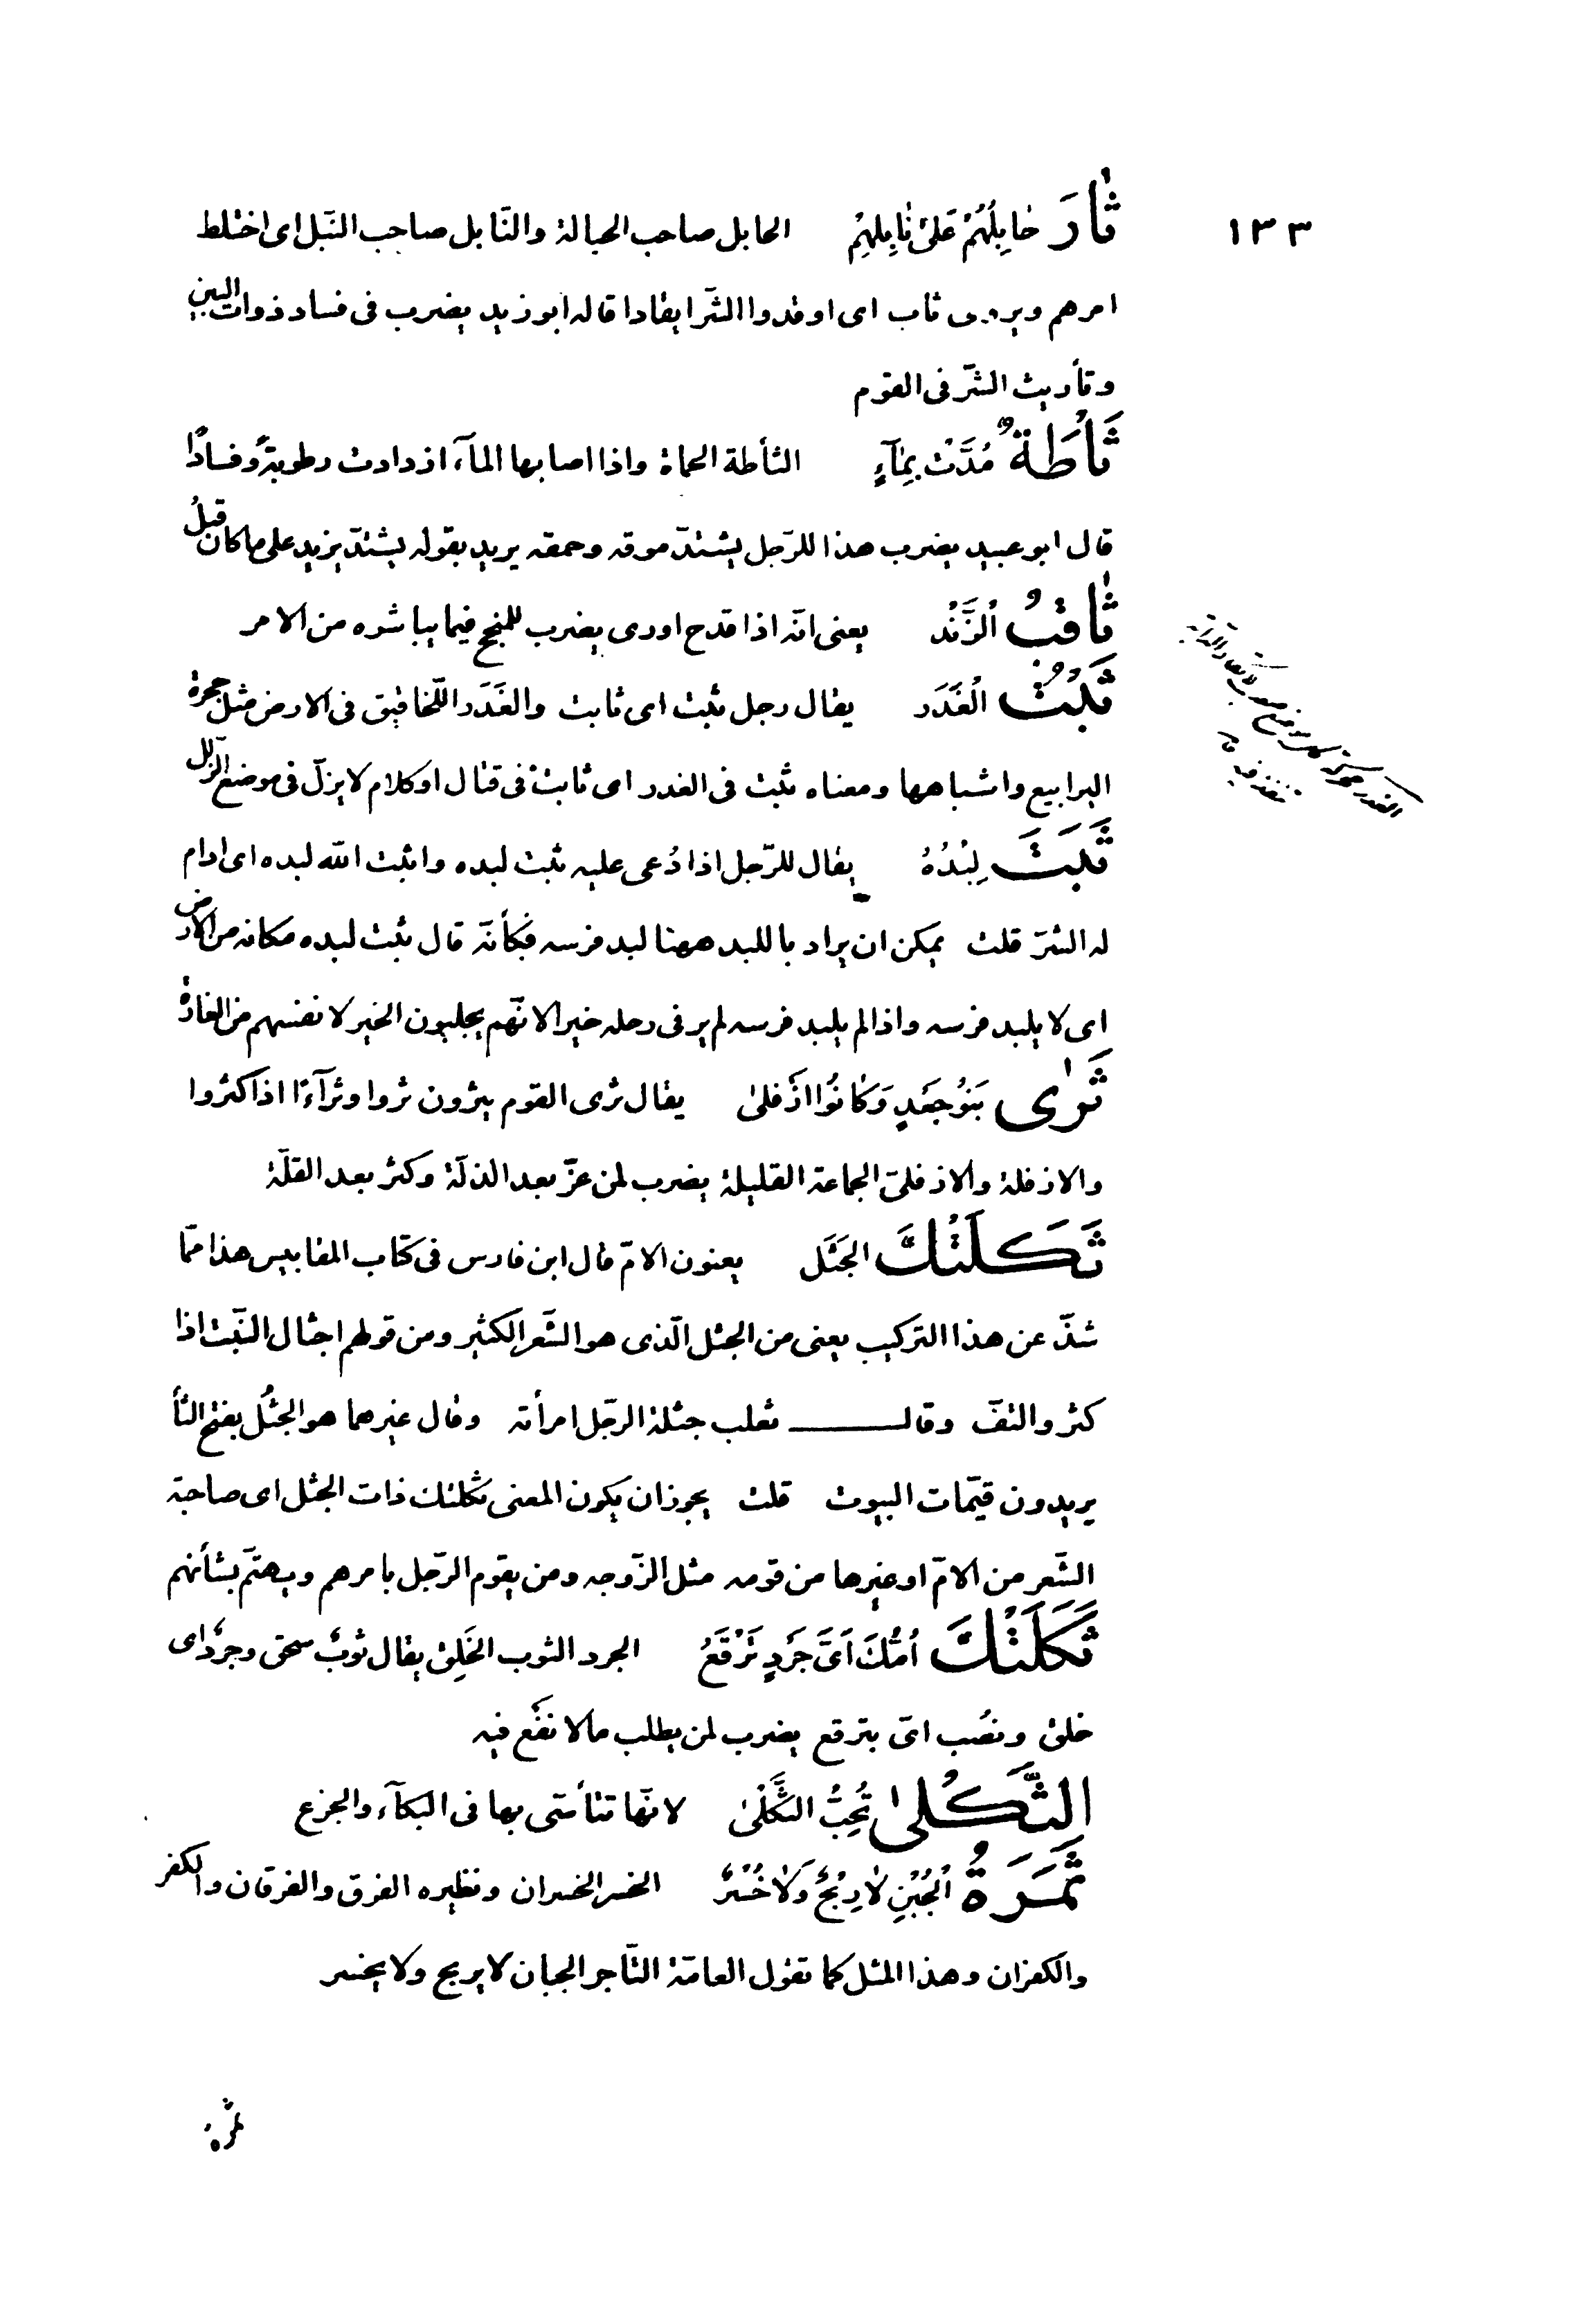 ١٣٣
ثَارَ حَابِلُهُمْ عَلىٰ نَابِلِهِمْ الحابل صاحب الحبالة والنّابل صاحب النّبل اى اختلط
امرهم ويروى ثاب اى اوقدوا الشّر ايقادا قاله ابو زيد يضرب فى فساد ذوات البين
وتأريث الشّر فى القوم
ثَأْطَةٌ مُدَّتْ بِمَآءٍ الثأطة الحمأة واذا اصابها المآء ازدادت رطوبةً وفسادًا
قال ابو عبيد يضرب هذا للرّجل يشتدّ موقه وحمقه يريد بقوله يشتدّ يزيد على ما كان قبلُ
ثَاقِبُ الزَّنْدِ يعنى انّه اذا قدح اورى يضرب للمنجح فيما يباشره من الامر
ثَبْتُ الْغَدَرِ يقال رجل ثبت اى ثابت والغَدَر اللّخاقيق فى الارض مثل جحرة
اليرابيع واشباهها ومعناه ثبت فى الغدر اى ثابت فى قتال او كلام لا يزلّ فى موضع الزّلل
ثَبَتَ لِبْدُهُ يقال للرّجل اذا دُعى عليه ثبت لبده واثبت الله لبده اى ادام
له الشرّ قلت يمكن ان يراد باللبد ههنا لبد فرسه فكأنّه قال ثبت لبده مكانه من الارض
اى لا يلبد فرسه واذا لم يلبد فرسه لم ير فى رحله خيرا لانّهم يجلبون الخير لانفسهم من الغارة
ثَرٰى بَنُو جَعْدٍ وَكَانُوا اَزْفَلىٰ يقال ثرى القوم يثرون ثروا وثرآءًا اذا كثروا
والازفلة والازفلىّ الجماعة القليلة يضرب لمن عزّ بعد الذلّة وكثر بعد القلّة
ثَكِلَتْكَ الجَثَل يعنون الامّ قال ابن فارس فى كتاب المقاييس هذا ممّا
شذّ عن هذا التركيب يعنى من الجثل الّذى هو الشّعر الكثير ومن قولهم اجثال النّبت اذا
كثر والتفّ وقال ثعلب جثلة الرّجل امرأته وقال غيرهما هو الجثَل بفتح الثأ
يريدون قيّمات البيوت قلت يجوز ان يكون المعنى ثكلتك ذات الجثل اى صاحبة
الشّعر من الامّ او غيرها من قومه مثل الزّوجه ومن يقوم الرّجل بامرهم ويهتمّ بشأنهم
ثَكِلَتْكَ اُمُّكَ اَىَّ جَرْدٍ تَرْقَعُ الجرد الثوب الخَلِق يقال ثوبٌ سحق وجردٌ اى
خلق ونصُب اىّ بترقع يضرب لمن يطلب ما لا نفْع فيه
الثَّكْلىٰ تُحِبُّ الثَّكْلىٰ لانّها تتأسّى بها فى البكآء والجزع
ثَمَرَةُ الْجُبْنِ لَا رِبْحٌ وَلَا خُسْرٌ الخسر الخسران ونظيره الفرق والفرقان والكفر
والكفران وهذا المثل كما تقول العامّة التّاجر الجبان لا يربح ولا يخسر